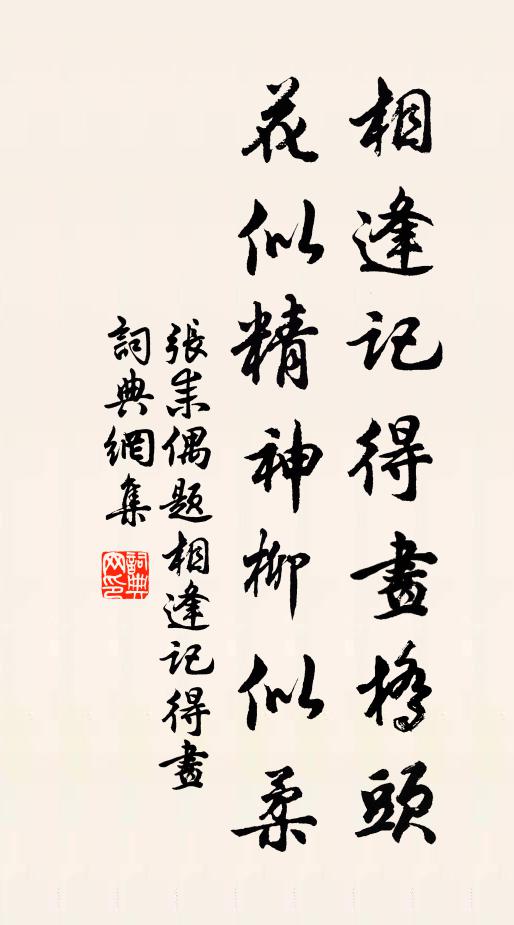 相逢記得畫橋頭
花似精神柳似柔
張耒偶題相逢記得畫
詞典網集
詞典
网印